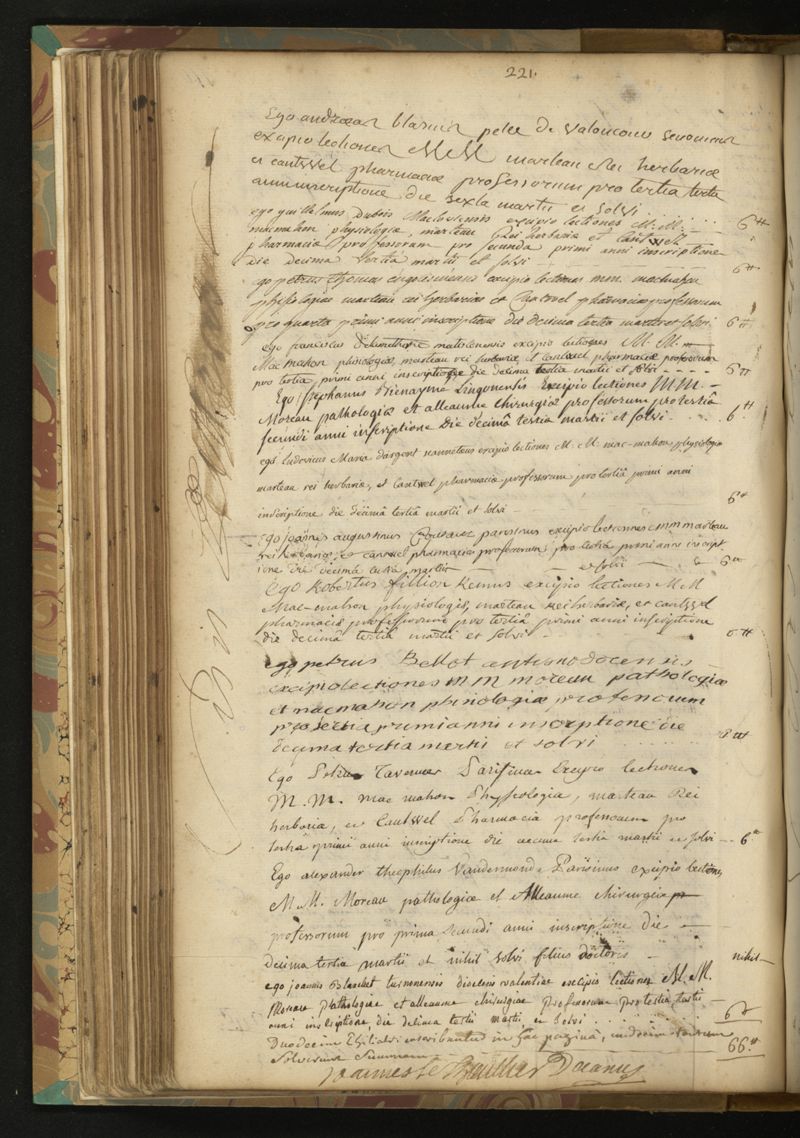 221.
Ego andreas blasius pelee De valoncour senonensis
excipio lectiones MM marteau Rei herbariæ
et cantwel pharmaciæ professorum pro tertia tertii
anni inscriptione die sexta martii et solvi 6tt
ego guillelmus Dubois Macloviensis excipio lectiones M. M.
macmahon physiologiæ, marteau Rei herbariæ et Cantwel
pharmaciæ professorum pro secunda primi anni inscriptione
die decima tertia martii et solvi 6tt
ego petrus thomas excipio lectiones mm. macmahon
phisiologiæ marteau rei herbariæ et Cantwel pharmaciæ professorum
pro quarta primi anni inscriptione die decima tertia martii et solvi. 6tt
ego franciscus excipio lectiones M. M.
Mac mahon phisologiæ, marteau rei herbariæ et cantwel pharmaciæ professorum
pro tertia primi anni inscriptione die decima tertia martii et solvi 6tt
Ego stephanus Bienaymé Lingonensis Excipio lectiones MM.
Moreau pathologiæ et alleaume chirurgiæ professorum pro tertiâ
secundi anni inscriptione Die decimâ tertia martii et solvi 6tt
ego Ludovicus Maria Dargent nannetensis excipio lectiones M. M. mac-mahon physiologiæ
marteau rei herbariæ, et Cantwel pharmaciæ professorum pro tertiâ primi anni
inscriptione die decimâ tertiâ martii et solvi 6tt
ego joannes augustinus parisinus excipio lectiones mm marteau
rei herbariæ, et cantwel pharmaciæ professorum pro tertia primi anni inscript
ione die decimâ tertiâ martii et solvi 6tt
Ego Robertus fillion Remus excipio lectiones M M
Mac-mahon physiologiæ, marteau Rei herbariæ, et cantwel
pharmaciæ professorum pro tertiâ primi anni inscriptione
die decimâ tertiâ martii et solvi 6tt
ego petrus Bellot
excipio lectiones m m moreau pathologiæ
et macmahon phisiologiæ professorum
pro tertia primi anni inscriptione die
decima tertia martii et solvi
Ego Tavernier Parisinus Excipio lectiones
M. M. mac mahon Physiologia, marteau Rei
herboria, et Cantwel Pharmacia professorum pro
tertia primi anni inscriptione die decima tertia martii et solvi 6tt
Ego alexander theophilus Vandermonde Parisinus excipio lectiones
M. M. Moreau pathologiæ et Alleaume chirurgiæ
professorum pro prima secundi anni inscriptione die
decima tertia martii et nihil solvi filius doctoris nihil
ego joannis Blanchet turnonensis diocesis valentiæ excipio lectiones M. M.
Moreau Pathologiæ et alleaume chirurgiæ professorum pro tertia tertii
anni inscriptione, die decima tertii martii et solvi 6tt
Duodecim in hac pagina,
Solverunt Summam 66tt
joannes le Thuillier Decanus